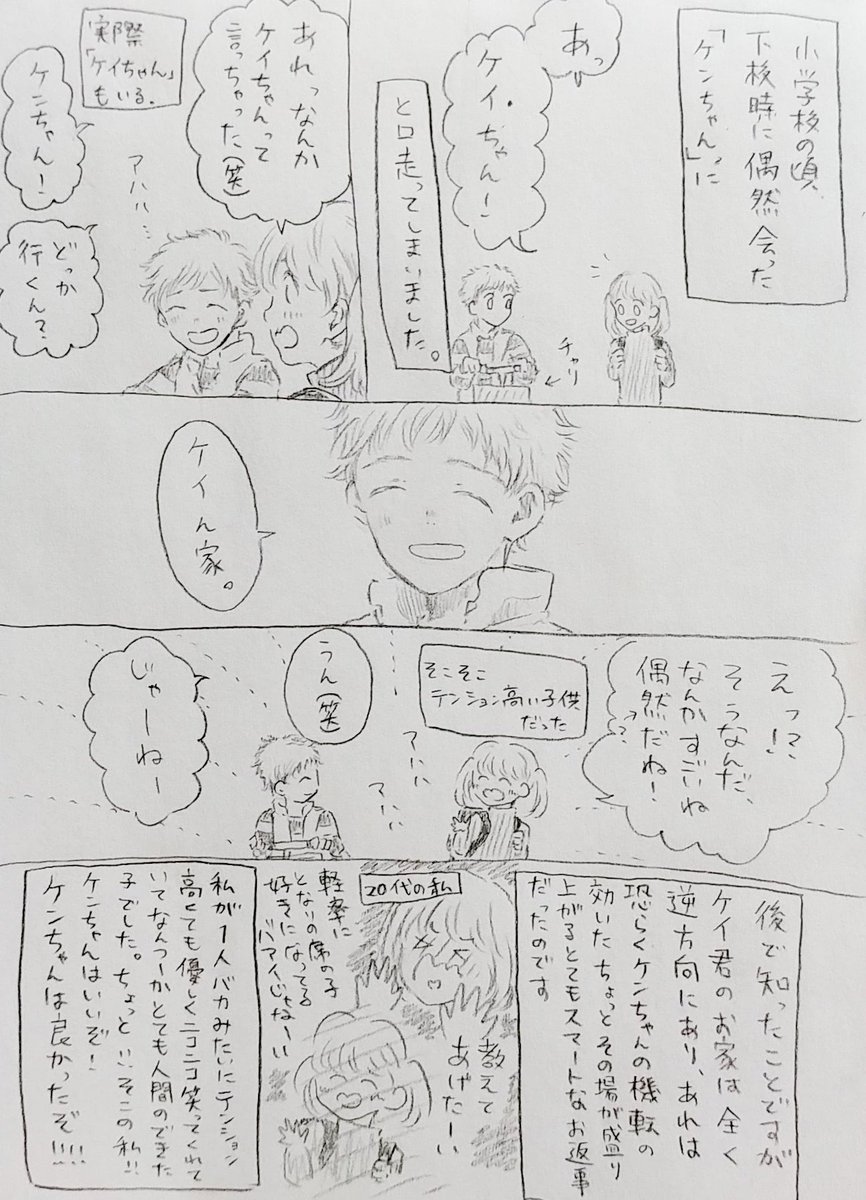 小学校の頃、
下校時に偶然会った
「ケンちゃん」に
あっ
ケイちゃん!
チャリ
と口走ってしまいました。
あれっなんか
ケイちゃんって
言っちゃった(笑)
実際
「ケイちゃん」
もいる。
ケンちゃん!
アハハ…
どっか
行くん?
ケイん家。
えっ!?
そうなんだ、
なんかすごいね
偶然だね!
?
そこそこ
テンション高い子供
だった
アハハ
アハハ
うん(笑)
じゃーねー
後で知ったことですが
ケイ君のお家は全く
逆方向にあり、あれは
恐らくケンちゃんの機転の
効いたちょっとその場が盛り
上がるとてもスマートなお返事
だったのです
20代の私
教えて
あげたーい
軽率に
となりの席の子
好きになってる
バアイじゃなーい
私が1人バカみたいにテンション
高くても優しくニコニコ笑ってくれて
いてなんつーかとても人間のできた
子でした。ちょっと!!そこの私!!
ケンちゃんはいいぞ!
ケンちゃんは良かったぞ!!!!